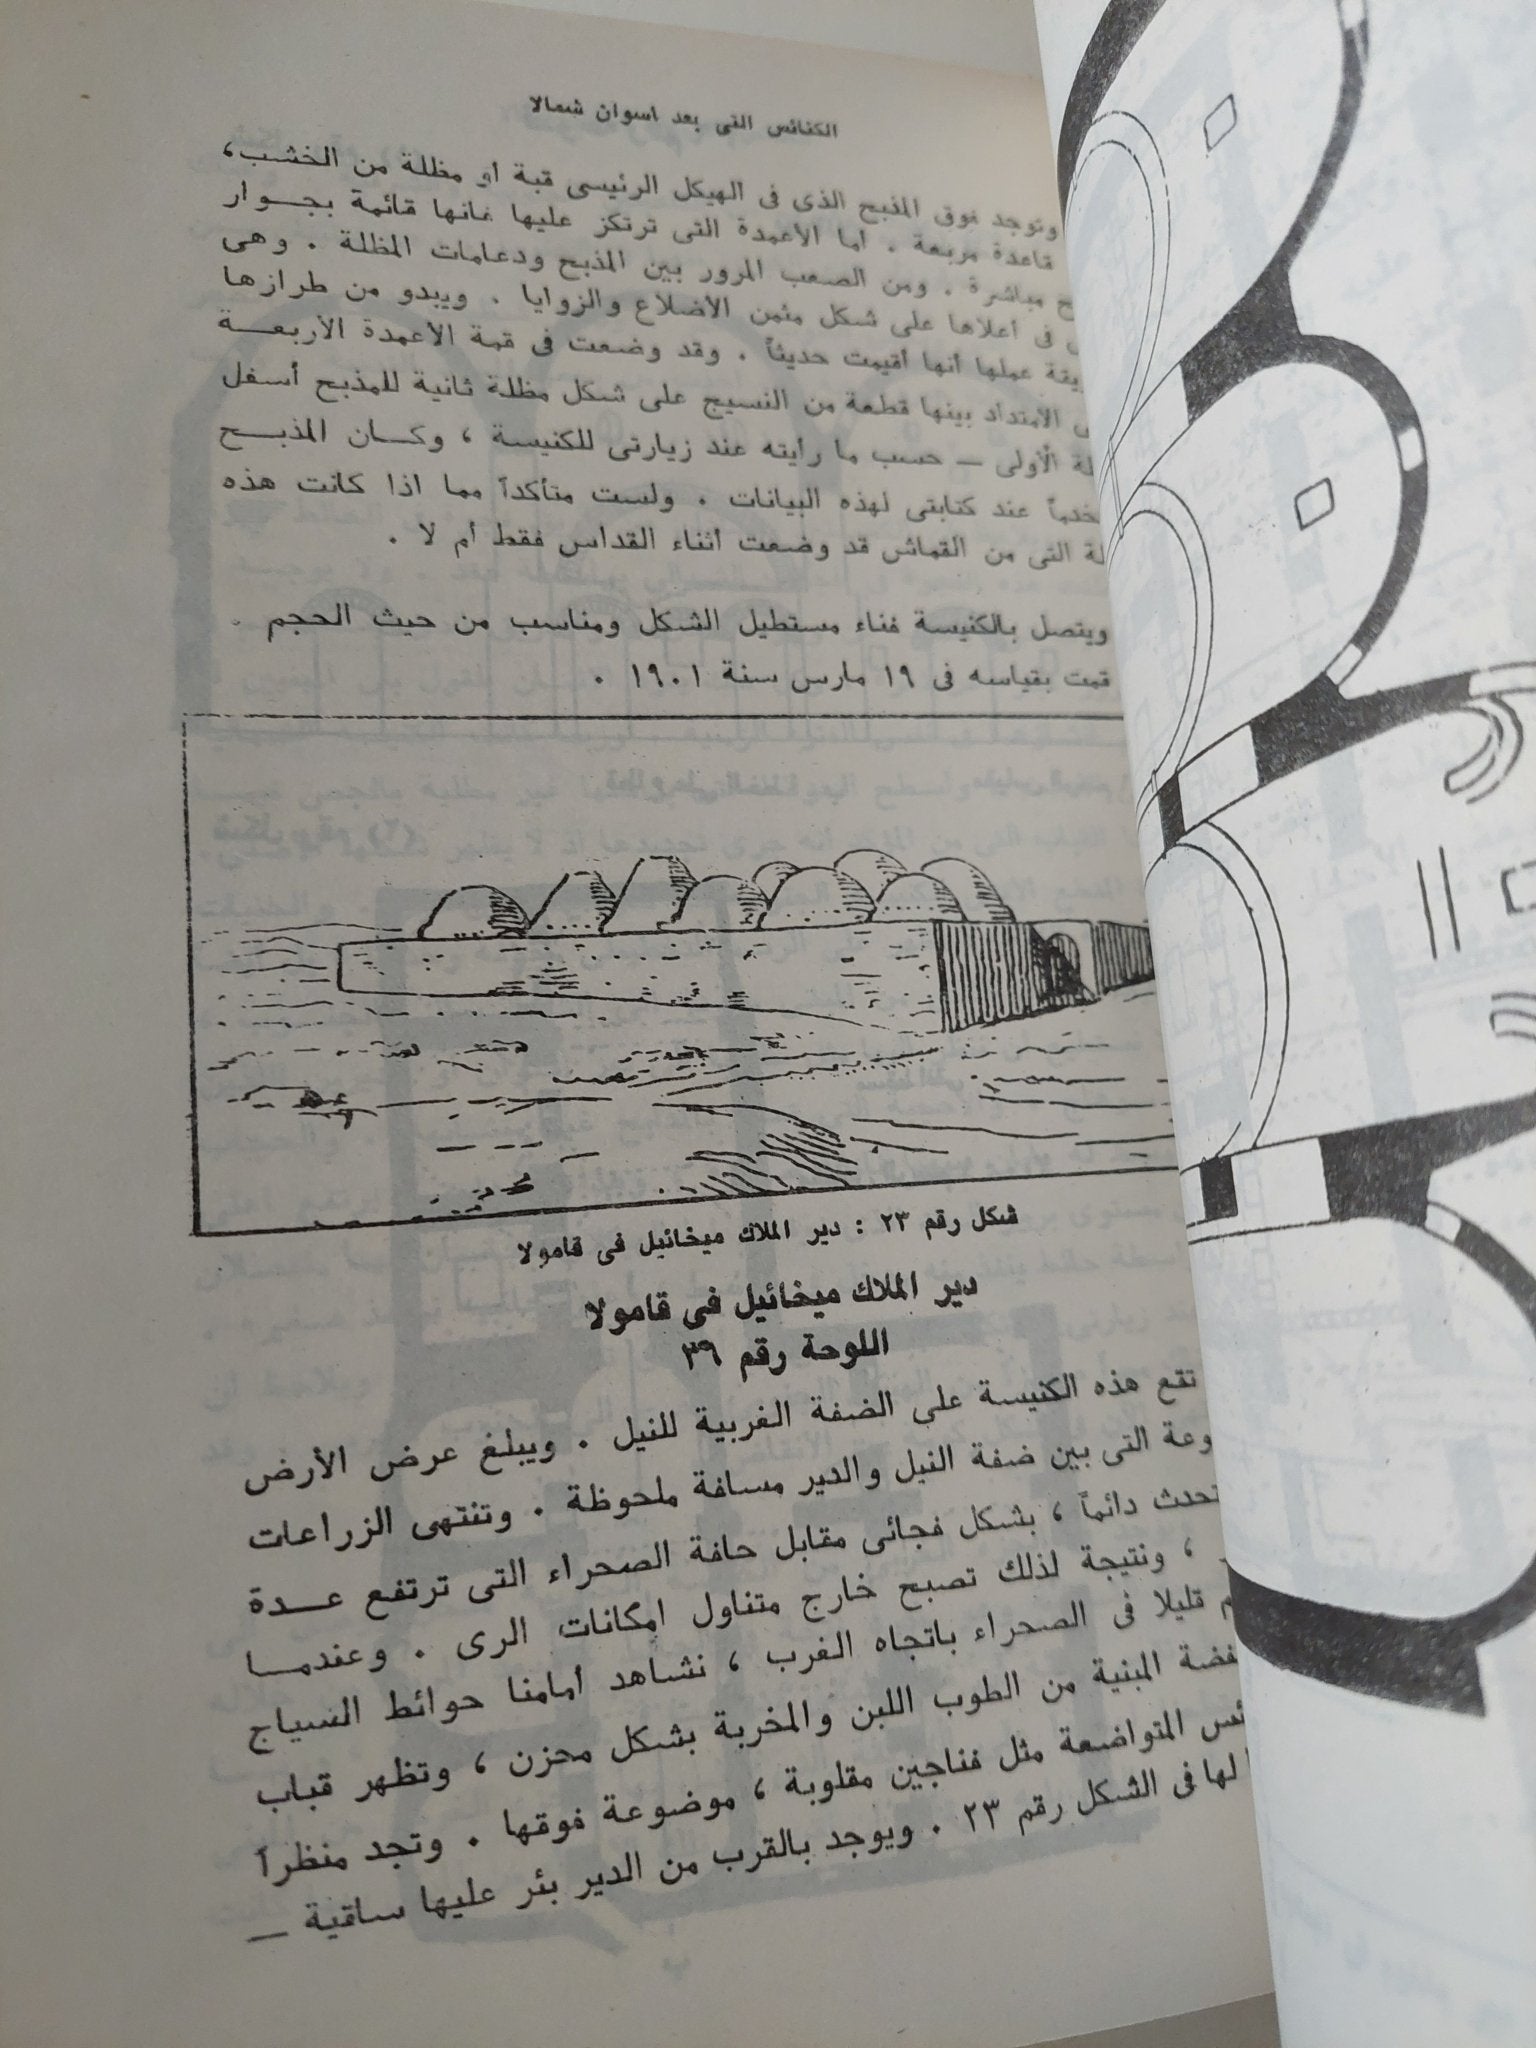 الكنائس التى بعد اسوان شمالا
وتوجد فوق المذبح الذى فى الهيكل الرئيسى قبة أو مظلة من الخشب،
قاعدة مربعة . أما الأعمدة التى ترتكز عليها فانها قائمة بجوار
مباشرة . ومن الصعب المرور بين المذبح ودعامات المظلة . وهى
فى أعلاها على شكل مثمن الأضلاع والزوايا . ويبدو من طرازها
عملها أنها أقيمت حديثاً . وقد وضعت فى قمة الأعمدة الأربعة
الامتداد بينها قطعة من النسيج على شكل مظلة ثانية للمذبح أسفل
الأولى — حسب ما رأيته عند زيارتى للكنيسة ، وكان المذبح
عند كتابتى لهذه البيانات . ولست متأكداً مما اذا كانت هذه
التى من القماش قد وضعت أثناء القداس فقط أم لا .
ويتصل بالكنيسة فناء مستطيل الشكل ومناسب من حيث الحجم .
قمت بقياسه فى ١٩ مارس سنة ١٩٠١ .
شكل رقم ٢٣ : دير الملاك ميخائيل فى قامولا
دير الملاك ميخائيل فى قامولا
اللوحة رقم ٣٦
تقع هذه الكنيسة على الضفة الغربية للنيل . ويبلغ عرض الأرض
التى بين ضفة النيل والدير مسافة ملحوظة . وتنتهى الزراعات
دائماً ، بشكل فجائى مقابل حافة الصحراء التى ترتفع عدة
، ونتيجة لذلك تصبح خارج متناول امكانات الرى . وعندما
قليلا فى الصحراء باتجاه الغرب ، نشاهد أمامنا حوائط السياج
المبنية من الطوب اللبن والمخربة بشكل محزن ، وتظهر قباب
المتواضعة مثل فناجين مقلوبة ، موضوعة فوقها . وتجد منظراً
لها فى الشكل رقم ٢٣ . ويوجد بالقرب من الدير بئر عليها ساقية —